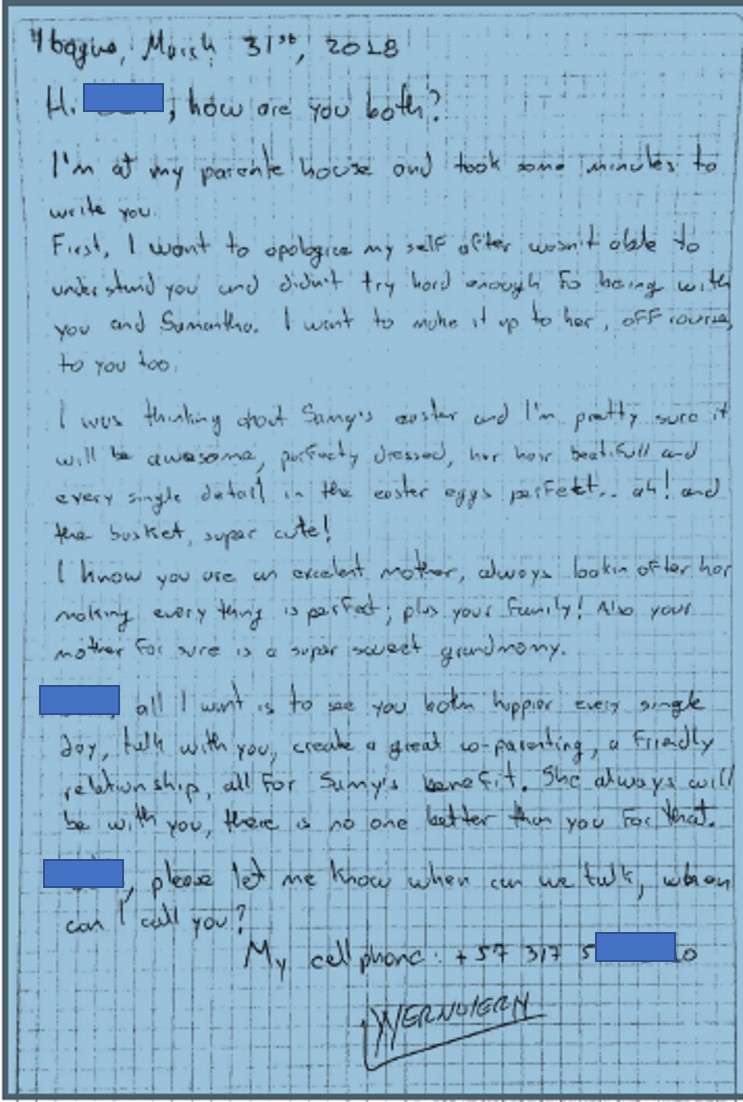 Ibague, March 31st, 2018
Hi , how are you both?
I'm at my parents house and took some minutes to
write you.
First, I want to apologize my self after wasn't able to
understand you and didn't try hard enough to being with
you and Samantha. I want to make it up to her, off course,
to you too.
I was thinking about Samy's easter and I'm pretty sure it
will be awesome, perfecty dressed, her hair beatifull and
every single detail in the easter eggs perfect.. ah! and
the basket, super cute!
I know you are an excelent mother, always lookin after her
making every thing is perfect; plus your family! Also your
mother for sure is a super sweet grandmomy.
, all I want is to see you both happier every single
day, talk with you, create a great co-parenting, a friendly
relationship, all for Samy's benefit. She always will
be with you, there is no one better than you for that.
, please let me know when can we talk, when
can I call you?
My cell phone: +57 317 5 0